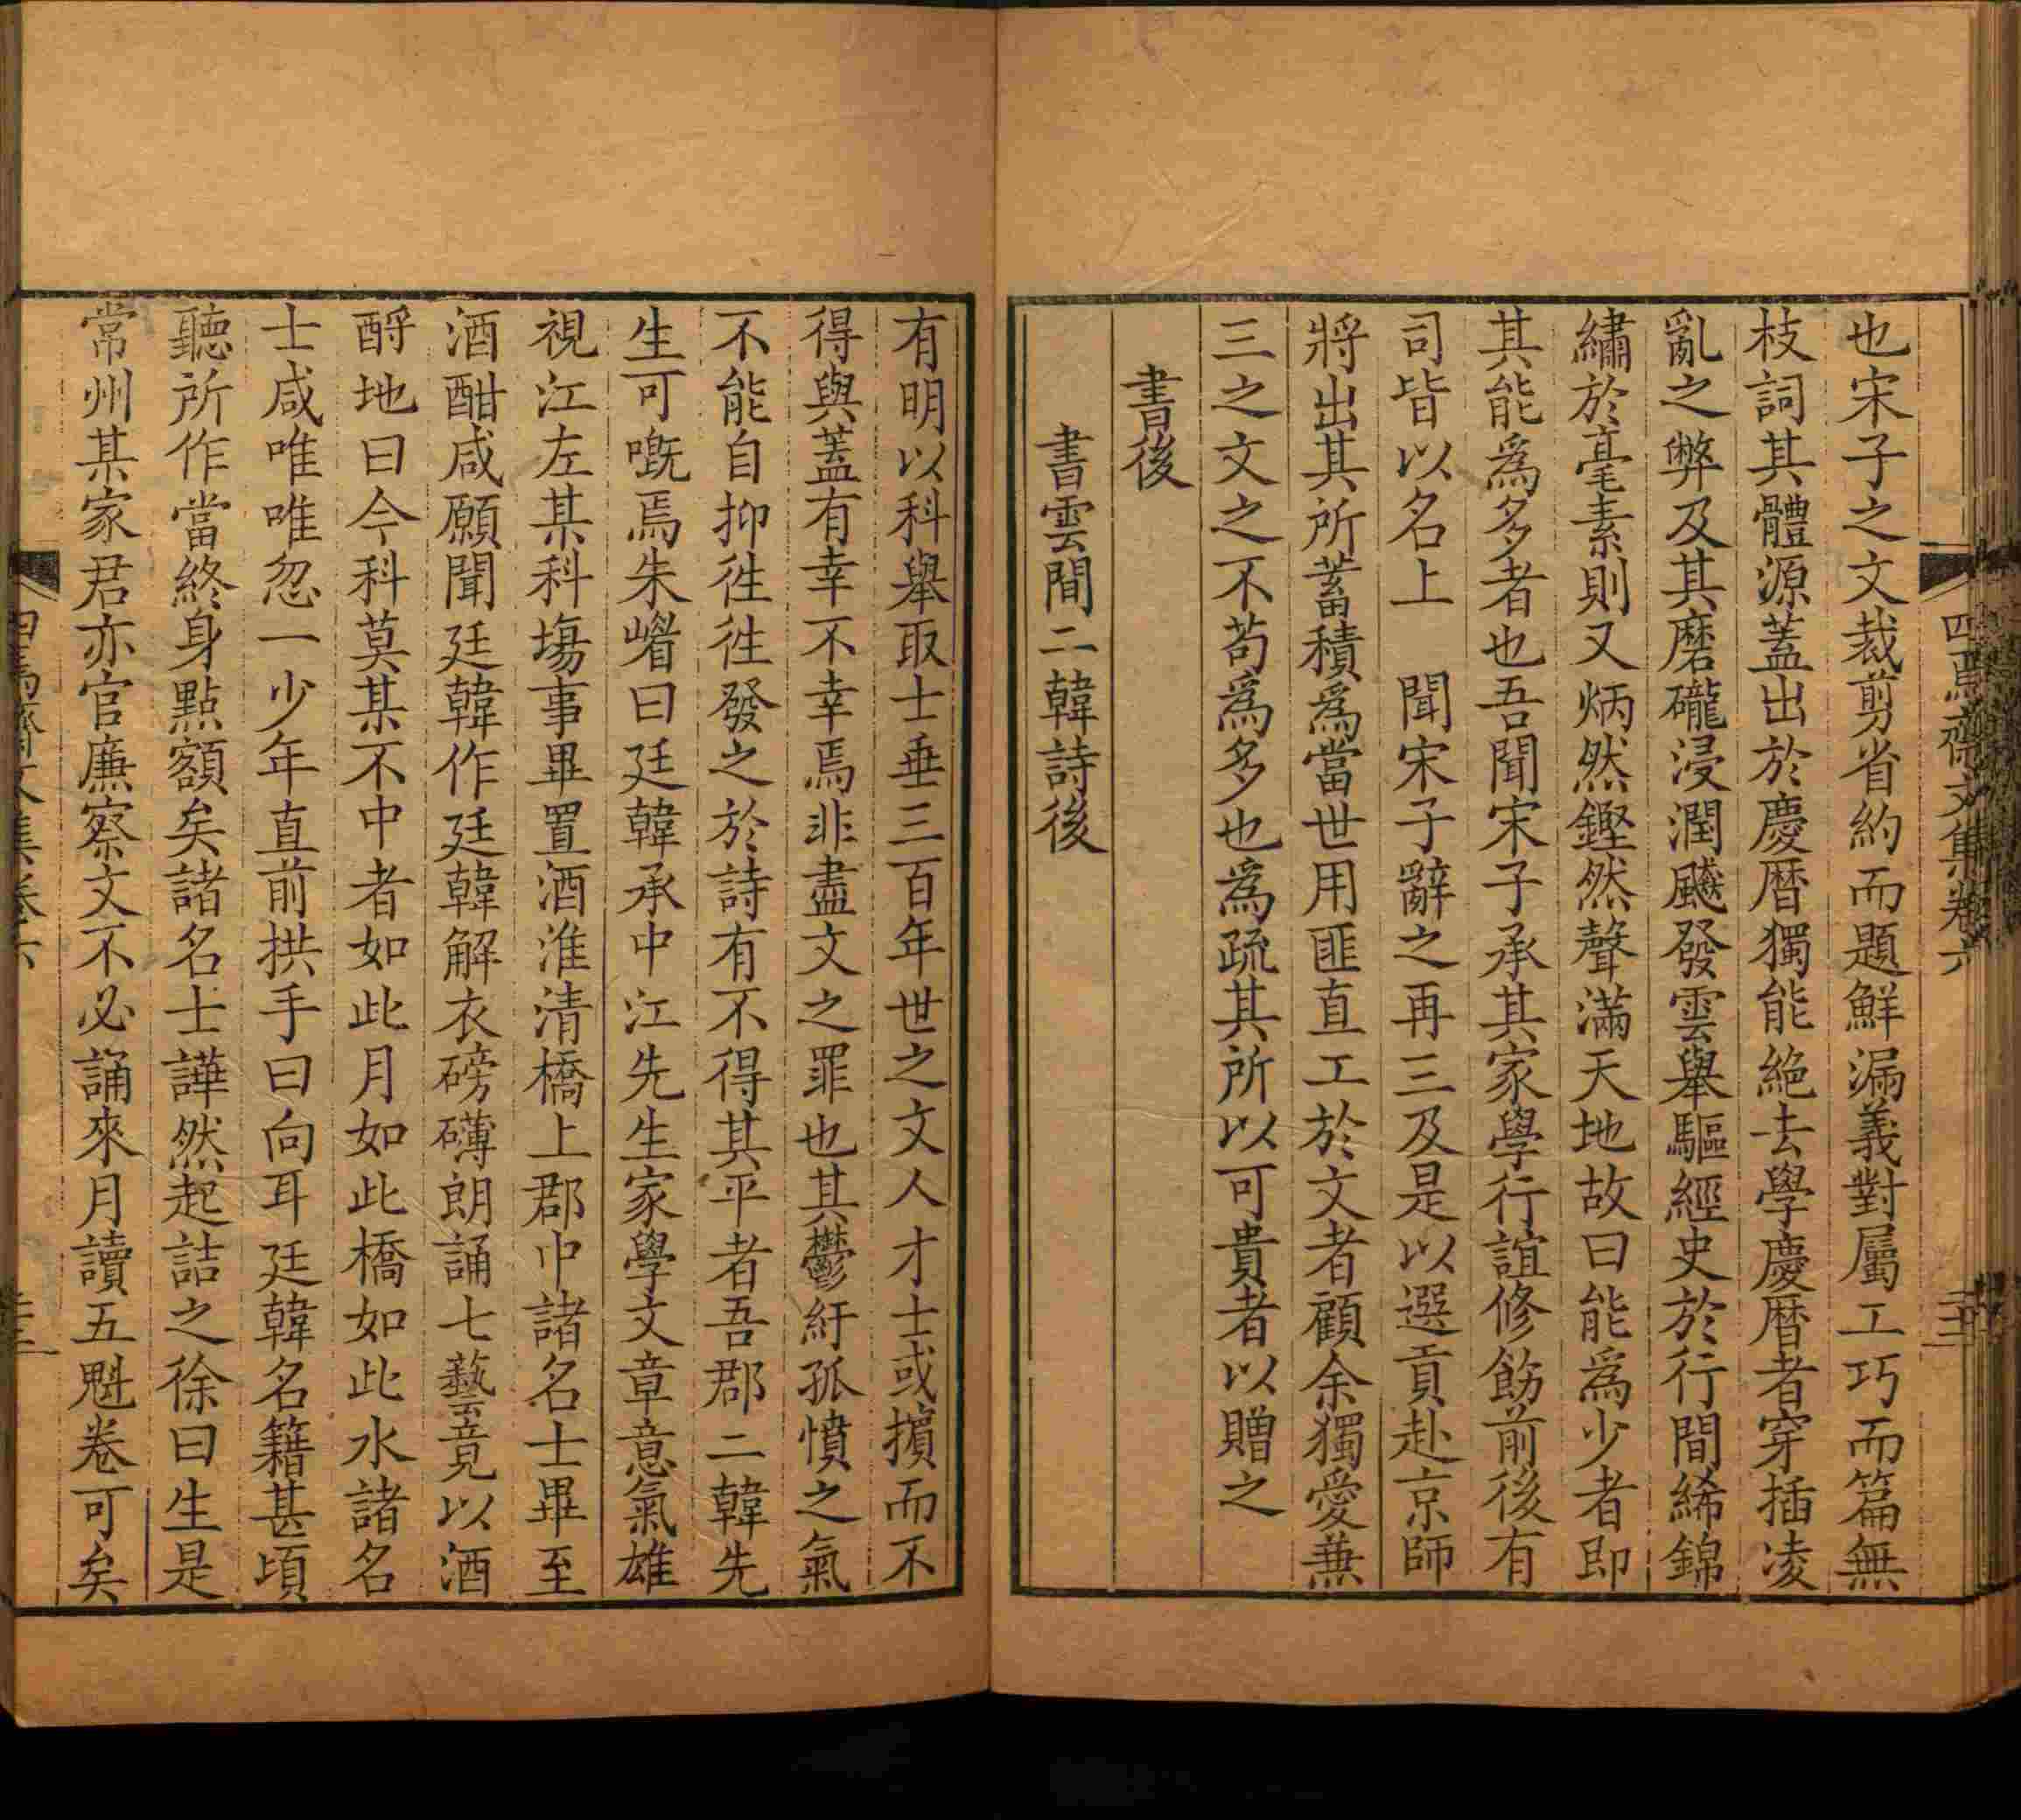 也宋子之文裁剪省約而題鮮漏義對屬工巧而篇無
枝詞其體源蓋出於慶曆獨能絶去學慶曆者穿插凌
亂之弊及其磨礲浸潤飈發雲舉驅經史於行間絺錦
繡於毫素則又炳然鏗然聲滿天地故曰能爲少者即
其能爲多者也吾聞宋子承其家學行誼修飭前後有
司皆以名上　聞宋子辭之再三及是以選貢赴京師
將出其所蓄積爲當世用匪直工於文者顧余獨愛蕪
三之文之不苟爲多也爲疏其所以可貴者以贈之
書後
書雲間二韓詩後
有明以科舉取士垂三百年世之文人才士或擯而不
得與蓋有幸不幸焉非盡文之罪也其鬱紆孤憤之氣
不能自抑徃徃發之於詩有不得其平者吾郡二韓先
生可嘅焉朱㟭曰廷韓承中江先生家學文章意氣雄
視江左某科塲事畢置酒淮清橋上郡中諸名士畢至
酒酣咸願聞廷韓作廷韓解衣磅礴朗誦七藝竟以酒
酹地曰今科莫某不中者如此月如此橋如此水諸名
士咸唯唯忽一少年直前拱手曰向耳廷韓名籍甚頃
聽所作當終身點額矣諸名士譁然起詰之徐曰生是
常州某家君亦官廉察文不必誦來月讀五魁卷可矣
四焉齋文集卷六